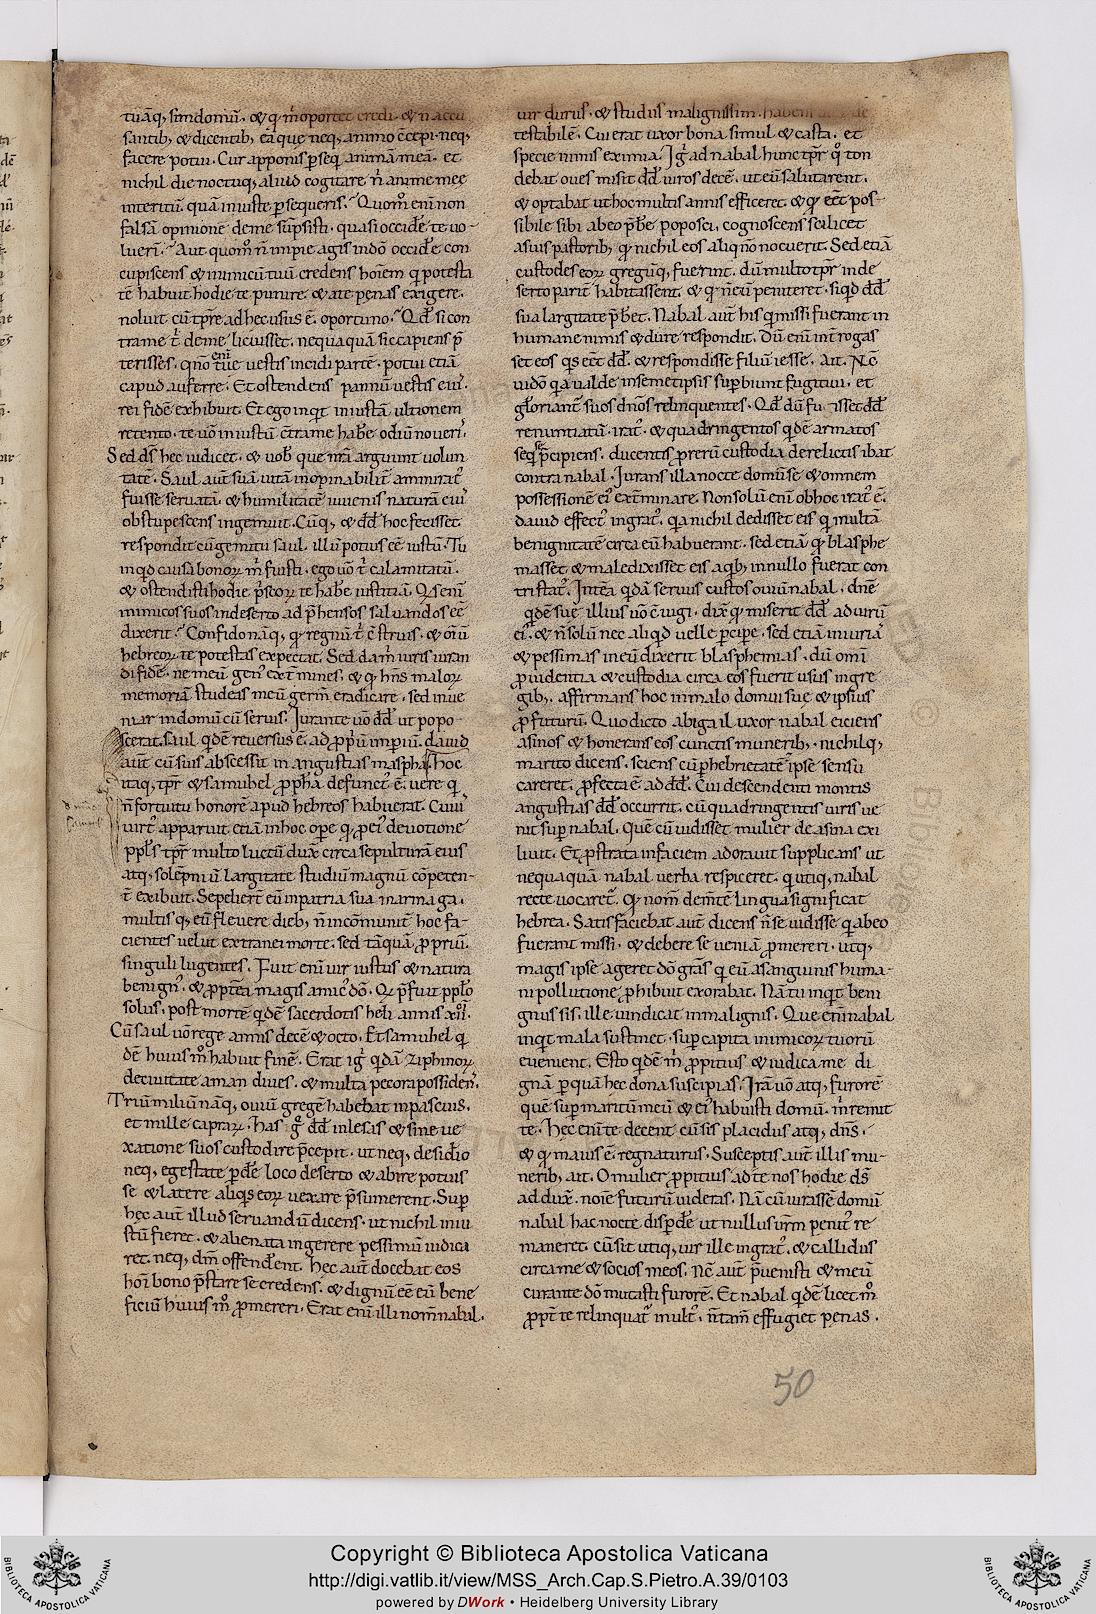 tuāq; sim domū. & q m̄ oportet credi. & n accu
santib; & dicentib; ea que neq; animo c̄cepi. neq;
facere potui. Cur apponis p̄seq animā meā. et
nichil die noctuq; aliud cogitare n̄ anime meę
interitū. quā iniuste p̄sequeris. Quom̄ enī non
falsā opinionē de me sūpsisti. quasi occidē te uo-
luerī. Aut quom̄ n̄ impie agis in dō occidē con
cupiscens & inimicū tuū credens hoīem q potesta
tē habuit hodie te punire. & a te penas exigere.
noluit cū tp̄re ad hec usus ē. oportuno. Qd̄ si con
tra me t̄ de me licuisset. nequaquā sic capiens p̄
terisses. qn̄o enī tuę uestis incidi partē. potui etiā
capud auferre. Et ostendens pannū uestis eiu'.
rei fidē exhibuit. Et ego inqt iniustā ultionem
retento. te uō iniustū c̄tra me habē odiū nouerī.
Sed ds̄ hec iudicet. & uob que nrā arguunt uolun
tatē. Saul aut̄ suā uitā inopinabilit̄ ammirat'
fuisse seruatā. & humilitatē iuuenis naturā eiu'
obstupescens ingemuit. Cūq; & dd̄ hoc fecisset
respondit cū gemitu saul. illū potius eē iustū. Tu
inqd causa bonoꝝ m̄ fuisti. ego uō t̄ calamitatū.
& ostendisti hodie p̄scoꝝ te habē iustitiā. Qs enī
inimicos suos in deserto ad p̄hensos saluandos eē
dixerit. Confido nāq; q regnū t̄ c̄struis. & oīū
hebreoꝝ te potestas expectat. Sed da m̄ iuris iuran
di fidē. ne meū gen' ext̄mines. & q hn̄s maloꝝ
memoriā studeas meū germ̄ eradicare. sed inue
niar in domū cū seruis. Jurante uō dd̄ ut popo-
scerat. saul qdē reuersus ē. ad pp̄ū imp̄iū. dauid
aut̄ cū suis abscessit in angustias maspha. Hoc
itaq; tp̄r & samuhel pp̄ha defunct' ē. uere q
n̄ fortuitu honorē apud hebreos habuerat. Cuiu'
uirt' apparuit etiā in hoc ope q p eu' deuotione
pp̄ls tp̄r multo luctū dux circa sepulturā eius
atq; solēpniū largitate studiū magnū cōpeten-
t̄ exibuit. Sepeliert̄ eū in patria sua in armaga.
multis q; eū fleuere dieb; n̄ incōmunit̄ hoc fa-
cientes uelut extranei morte. sed tāquā ppriū.
singuli lugentes. Fuit enī uir iustus & natura
benign'. & pp̄tea magis amic' dō. Q p̄fuit pplo
solus. post mortē qdē sacerdotis heli annis xii.
Cū saul uō rege annis decē & octo. Et samuhel q
dē huius m̄ habuit finē. Erat ig' qdā ziphinoꝝ
de ciuitate aman diues. & multa pecora possidens.
Triū miliū nāq; ouiū gregē habebat in pascuis.
et mille capraꝝ. has g' dd̄ inlesas & sine ue
xatione suos custodire p̄cepit. ut neq; desidio
neq; egestate pdē loco deserto & abire potius
se & latere aliqs eoꝝ uexare p̄sumerent. Sup
hęc aut̄ illud seruandū dicens. ut nichil iniu
stū fieret. & alienata ingerere pessimū iudica
ret. neq; dm̄ offendēent. Hęc aut̄ docebat eos
hoī bono p̄stare se credens. & dignū eē eū bene
ficiū huius m̄ pmereri. Erat enī illi nom̄ nabal.
uir durus. & studiis malignissim. habens
testabilē. Cui erat uxor bona simul & casta. et
specie nimis eximia. Jḡ ad nabal hunc tp̄r q' ton
debat oues misit dd̄ uiros decē. ut eū salutarent.
& optabat ut hoc multis annis efficeret. & q eēt pos-
sibile sibi ab eo p̄be poposci. cognoscens scilicet
a suis pastorib; q nichil eos aliqn̄o nocuerit. Sed etiā
custodes eoꝝ gregūq; fuerint. dū multo tp̄r in de
serto parit̄ habitassent. & q n̄ eū peniteret. siqd dd̄
sua largitate p̄bet. Nabal aut̄ his q missi fuerant in
humane nimis & dure respondit. Dū enī int̄rogas
set eos qs eēt dd̄. & respondisse filiū iesse. Ait. Nc̄
uidō q a ualde in semetipsis supbiunt fugitiui. et
gloriant̄ suos dn̄os relinquentes. Qd̄ dū fuisset dd̄
renuntiatū. irat'. & quadringentos qdē armatos
seq se p̄cipiens. ducentis prerū custodia derelictis ibat
contra nabal. Jurans illa nocte domū se & omnem
possessionē ei' ext̄minare. Non solū enī ob hoc irat' ē.
dauid effect' ingrat'. q a nichil dedisset eis q multā
benignitatē circa eū habuerant. sed etiā q blasphe
masset & maledixisset eis a qb; in nullo fuerat con
tristat'. Intēa qdā seruus custos ouiū nabal. dn̄ę
qdē suę illius uō c̄iugi. dix q miserit dd̄ ad uirū
ei'. & n̄ solū nec aliqd uelle pcipe. sed etiā iniuriā
& pessimas in eū dixerit blasphemias. dū omī
puidentia & custodia circa eos fuerit usus in gre
gib;. affirmans hoc in malo domui suę & ipsius
pfuturū. Quo dicto abigail uxor nabal eiciens
asinos & honerans eos cunctis munerib;. nichilq;
marito dicens. sciens cū p hebrietatē ipse sensu
careret. pfecta ē ad dd̄. Cui descendenti montis
angustias dd̄ occurrit. cū quadringentis uiris ue
nit sup nabal. Quē cū uidisset mulier de asina exi
liuit. Et pstrata in faciem adorauit supplicans ut
nequaquā nabal uerba respiceret. q utiq; nabal
recte uocaret'. Q nom̄ dem̄te lingua significat
hebrea. Satisfaciebat aut̄ dicens n̄ se uidisse q ab eo
fuerant missi. & debere se ueniā pmereri. utq;
magis ipse ageret dō grās q eū a sanguinis huma-
ni pollutione phibuit exorabat. Nā tu inqt beni
gnus sis. ille uindicat in malignis. Que enī nabal
inqt mala sustinet. sup capita inimicoꝝ tuorū
eueniēnt. Esto qdē m̄ ppitius & iudica me di
gnā p quā hec dona suscipias. Irā uō atq; furorē
quē sup maritū meū & ei' habuisti domū. m̄ remit
te. Hęc enī te decent cū sis placidus atq; dn̄s.
& q maius ē. regnaturus. Susceptis aut̄ illis mu-
nerib; ait. O mulier ppitius ad te nos hodie ds̄
ad dux. noīe futurū uidetis. Nā cū iurassē domū
nabal hac nocte dispdē ut nullus urm̄ penit' re
maneret. cū sit utiq; uir ille ingrat'. & callidus
circa me & socios meos. Nc̄ aut̄ p̄uenisti & meū
curante dō mutasti furorē. Et nabal qdē licet m̄
pp̄t te relinquat' inult'. n̄ tam̄ effugiet pęnas.
50
Copyright © Biblioteca Apostolica Vaticana
http://digi.vatlib.it/view/MSS_Arch.Cap.S.Pietro.A.39/0103
powered by DWork • Heidelberg University Library
BIBLIOTECA APOSTOLICA VATICANA
BIBLIOTECA APOSTOLICA VATICANA